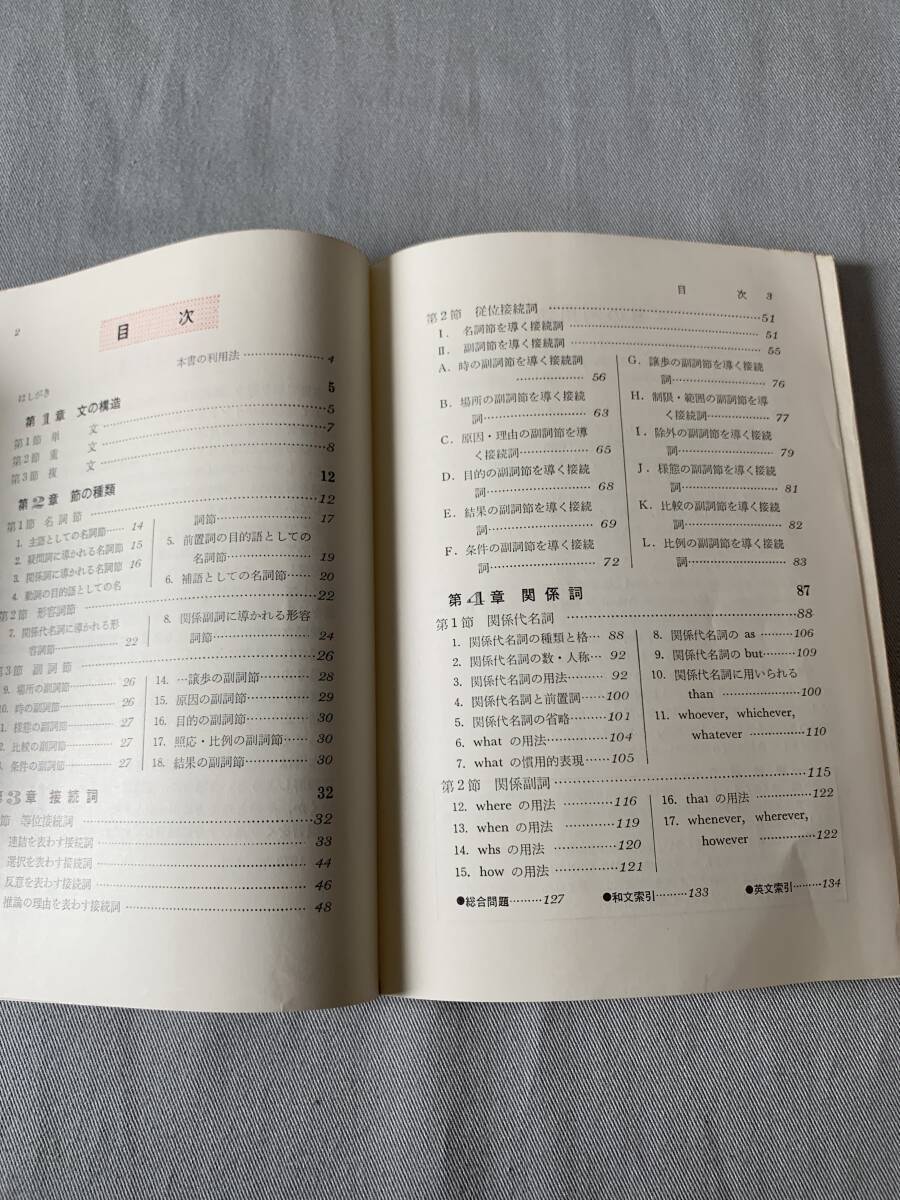 2
目 次
本書の利用法……………4
はしがき
第1章 文の構造 5
第1節 単 文……………5
第2節 重 文……………7
第3節 複 文……………8
第2章 節の種類 12
第1節 名詞節……………12
1. 主語としての名詞節……14
2. 疑問詞に導かれる名詞節 15
3. 関係詞に導かれる名詞節 16
4. 動詞の目的語としての名
詞節……………17
5. 前置詞の目的語としての
名詞節……………19
6. 補語としての名詞節……20
第2節 形容詞節……………22
7. 関係代名詞に導かれる形
容詞節……………22
8. 関係副詞に導かれる形容
詞節……………24
第3節 副詞節……………26
9. 場所の副詞節……………26
10. 時の副詞節……………26
1. 様態の副詞節……………27
2. 比較の副詞節……………27
3. 条件の副詞節……………27
14. …譲歩の副詞節……………28
15. 原因の副詞節……………29
16. 目的の副詞節……………30
17. 照応・比例の副詞節……30
18. 結果の副詞節……………30
第3章 接続詞 32
節 等位接続詞……………32
連結を表わす接続詞……………33
選択を表わす接続詞……………44
反意を表わす接続詞……………46
推論の理由を表わす接続詞……………48
目 次 3
第2節 従位接続詞……………51
I. 名詞節を導く接続詞……………51
II. 副詞節を導く接続詞……………55
A. 時の副詞節を導く接続詞
……………56
B. 場所の副詞節を導く接続
詞……………63
C. 原因・理由の副詞節を導
く接続詞……………65
D. 目的の副詞節を導く接続
詞……………68
E. 結果の副詞節を導く接続
詞……………69
F. 条件の副詞節を導く接続
詞……………72
G. 譲歩の副詞節を導く接続
詞……………76
H. 制限・範囲の副詞節を導
く接続詞……………77
I. 除外の副詞節を導く接続
詞……………79
J. 様態の副詞節を導く接続
詞……………81
K. 比較の副詞節を導く接続
詞……………82
L. 比例の副詞節を導く接続
詞……………83
第4章 関係詞 87
第1節 関係代名詞……………88
1. 関係代名詞の種類と格…88
2. 関係代名詞の数・人称…92
3. 関係代名詞の用法………92
4. 関係代名詞と前置詞……100
5. 関係代名詞の省略………101
6. what の用法……………104
7. what の慣用的表現……105
8. 関係代名詞の as………106
9. 関係代名詞の but………109
10. 関係代名詞に用いられる
than ……………100
11. whoever, whichever,
whatever ……………110
第2節 関係副詞……………115
12. where の用法 …………116
13. when の用法 …………119
14. whs の用法 …………120
15. how の用法……………121
16. that の用法 …………122
17. whenever, wherever,
however ……………122
●総合問題………127 ●和文索引………133 ●英文索引………134